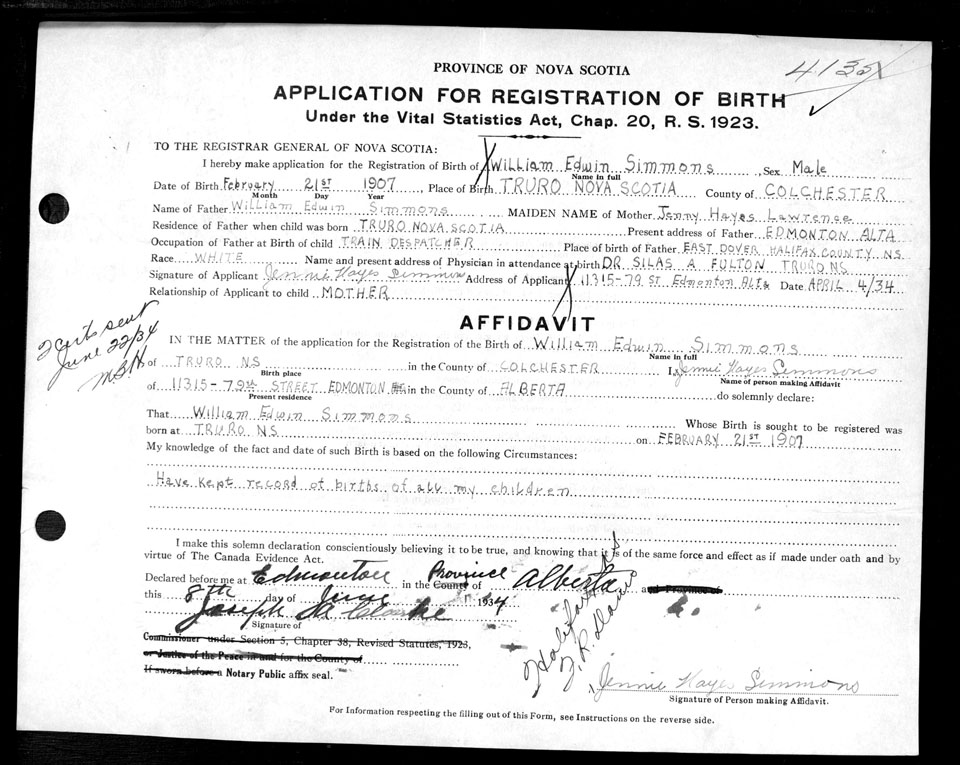 4135
PROVINCE OF NOVA SCOTIA
APPLICATION FOR REGISTRATION OF BIRTH
Under the Vital Statistics Act, Chap. 20, R. S. 1923.
TO THE REGISTRAR GENERAL OF NOVA SCOTIA:
I hereby make application for the Registration of Birth of William Edwin Simmons Sex Male
Name in full
Date of Birth February 21st 1907, Place of Birth TRURO NOVA SCOTIA County of COLCHESTER
Month Day Year
Name of Father William Edwin Simmons MAIDEN NAME of Mother Jenny Hayes Lawrence
Residence of Father when child was born TRURO NOVA SCOTIA Present address of Father EDMONTON ALTA
Occupation of Father at Birth of child TRAIN DESPATCHER Place of birth of Father EAST DOVER HALIFAX COUNTY NS
Race WHITE Name and present address of Physician in attendance at birth DR SILAS A FULTON TRURO NS
Signature of Applicant Jennie Hayes Simmons Address of Applicant 11315-79 St Edmonton Alta Date APRIL 4/34
Relationship of Applicant to child MOTHER
2 certs sent
June 22/34
MBH
AFFIDAVIT
IN THE MATTER of the application for Registration of the Birth of William Edwin Simmons
Name in full
of TRURO NS in the County of COLCHESTER I, Jennie Hayes Simmons
Birth place Name of person making Affidavit
of 11315-79th STREET EDMONTON in the County of ALBERTA do solemnly declare:
Present residence
That William Edwin Simmons Whose Birth is sought to be registered was
born at TRURO NS on FEBRUARY 21st 1907
My knowledge of the fact and date of such Birth is based on the following Circumstances:
Have kept record of births of all my children
I make this solemn declaration conscientiously believing it to be true, and knowing that it is of the same force and effect as if made under oath and by
virtue of The Canada Evidence Act.
Declared before me at Edmonton in the Province County of Alberta and Province of
this 8th day of June 1934
Joseph A Clarke
Signature of
Commissioner under Section 5, Chapter 38, Revised Statutes, 1923,
or Justice of the Peace in and for the County of
If sworn before a Notary Public affix seal.
Jennie Hayes Simmons
Signature of Person making Affidavit.
For Information respecting the filling out of this Form, see Instructions on the reverse side.